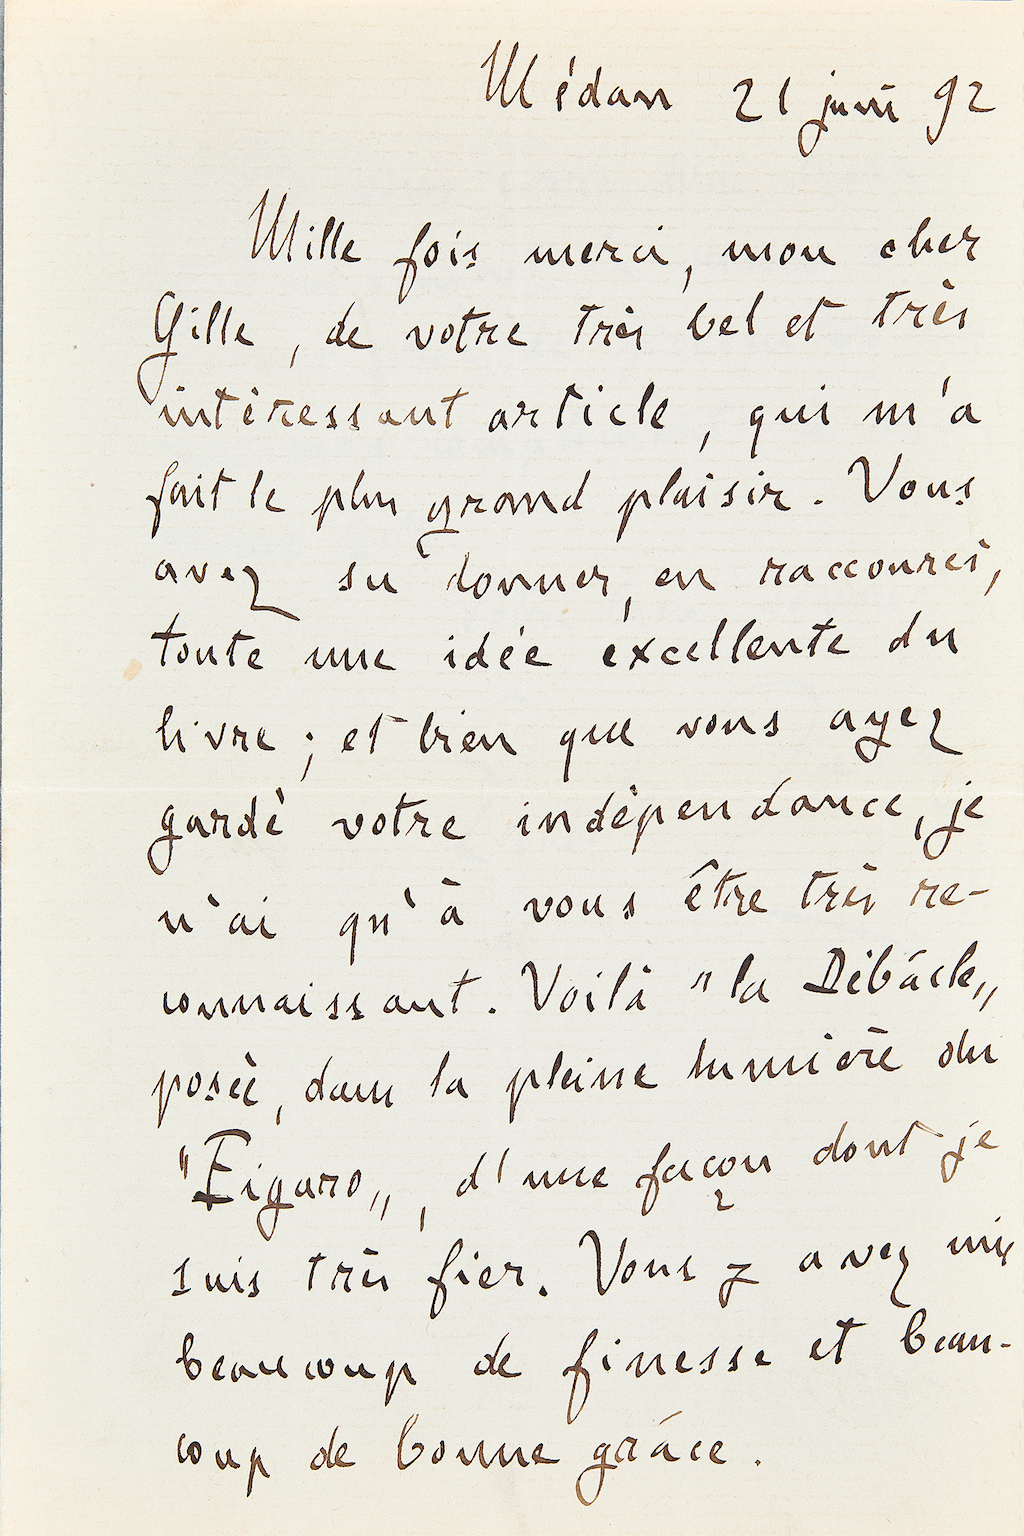 Médan 21 juin 92
Mille fois merci, mon cher
Gille, de votre très bel et très
intéressant article, qui m'a
fait le plus grand plaisir. Vous
avez su donner, en raccourci,
toute une idée excellente du
livre ; et bien que vous ayez
gardé votre indépendance, je
n'ai qu'à vous être très re-
connaissant. Voilà "la Débâcle„
posée, dans la pleine lumière du
"Figaro„, d'une façon dont je
suis très fier. Vous y avez mis
beaucoup de finesse et beau-
coup de bonne grâce.